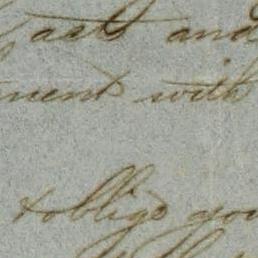 ask and
ment with
& oblige you